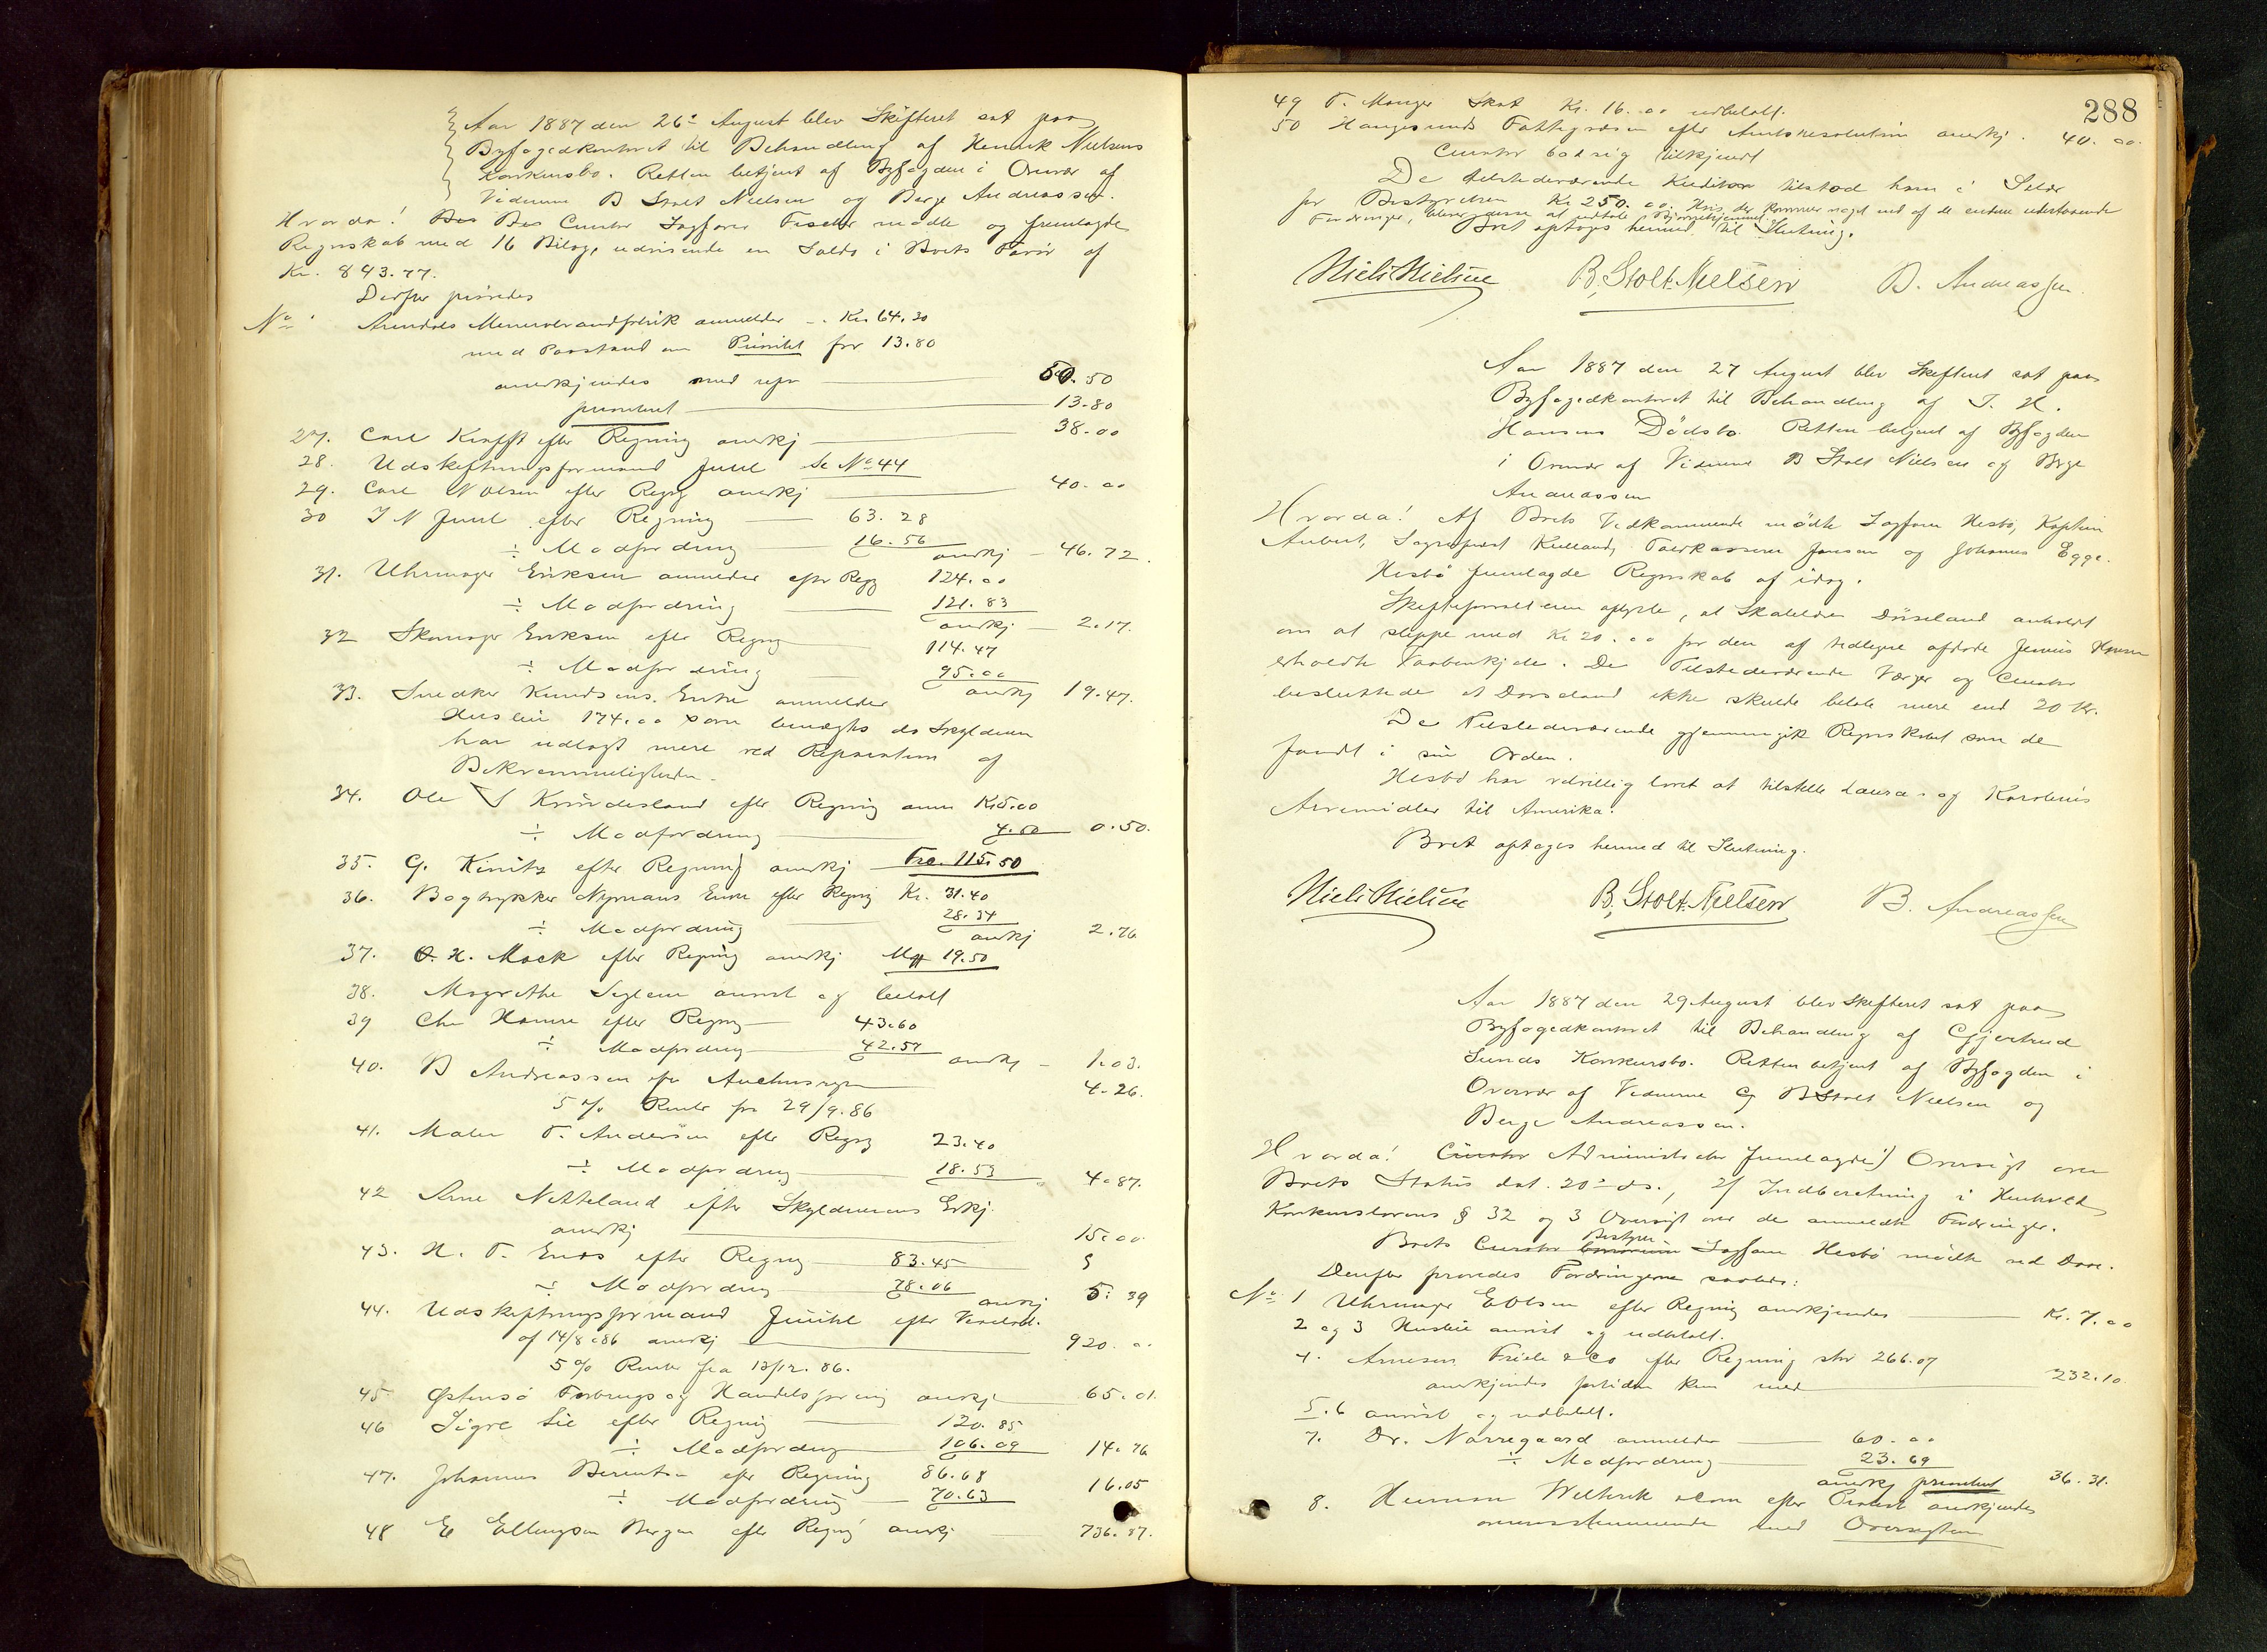 Aar 1887 den 26de August blev Skifteret sat paa
Byfogedkontoret til Behandling af Henrik Nielsens
Konkursbo. Retten betjent af Byfogden i Overvær af
Vidnerne B Stolt Nielsen og Berge Andreassen.
Hvorda! Boets Curator Sagfører Fischer mødte og fremlagde
Regnskab med 16 Bilag, udvisende en Saldo i Boets Favør af
Kr. 843.77.
Derpaa prøvedes
No 1 Arendals Mineralvandfabrik anmelder - Kr 64.30
med Paastand om Prioritet for 13.80
anerkjendes med upr 50.50
prioriteret 13.80
27. Carl Krafft efter Regning anerkj 38.00
28. Udskiftningsformand Juul Se No 44
29. Carl N Olsen efter Regng anerkj 40.00
30 I N Juul efter Regning 63.28
÷ Modfordring 16.56 anerkj - 46.72.
31. Uhrmager Eriksen anmelder efter Regg 124.00
÷ Modfordring 121.83 anerkj - 2.17.
32 Skomager Eriksen efter Regng 114.47
÷ Modfordring 95.00 anerkj 19.47.
33. Snedker Knudsens Enke anmelder
Husleie 174.00 som benægtes da Skyldneren
har udlagt mere ved Reparation af
Bekvemmeligheden.
34. Ole Kvindesland efter Regning anm Kr 5.00
÷ Modfordring 4.50 0.50.
35. G. Kinitz efter Regning anerkj Frc. 115.50
36. Bogtrykker Nymans Enke efter Regnig Kr. 31.40
÷ Modfordring 28.34 anerkj 2.76
37. O. H. Mock efter Regning anerkj Mk 19.50
38. Magrethe anvist og betalt
39 Chr Hansen efter Regng 43.60
÷ Modfordring 42.57 anerkj - 1.03.
40. B Andreassen for 4.26.
5 % Rente fra 29/9.86
41. Maler T. Andersen efter Regng 23.40
÷ Modfordring 18.53 4.87.
42 Arne Netteland efter Skyldnerens Erkj.
anerkj 15.00
43. H. T. Enos efter Regng 83.45
÷ Modfordring 78.06 anerkj 5.39
44. Udskiftningsformand Juuhl efter Vexelobl.
af 14/8 86 anerkj 920.00
5 % Rente fra 13/12. 86.
45 Østensø Forbrugs og Handelsforening anerkj 65.01.
46 Sigre Lie efter Regnig 120.85
÷ Modfordring 106.09 14.76
47. Johannes Berentsen efter Regning 86.68
÷ Modfordring 70.63 16.05
48 E Ellingsen Bergen efter Regnig anerkj 736.87.
288
49 T. Monger Skat Kr. 16.00 udbetalt.
50 Haugesunds Fattigvæsen efter Amtsresolution anerkj. 40.00
Curator bad sig tilkjendt
De tilstedeværende Kreditorer tilstod ham i Salær
for Bestyrelsen Kr 250.00. Hvis der kommer noget ind af de endnu udestaaende
Fordringer, bliver disse at udbetale
Boet optages hermed til Slutning.
Niels Nielsen B. Stolt-Nielsen B. Andreassen
Aar 1887 den 27 August blev Skifteret sat paa
Byfogedkontoret til Behandling af I. H.
Hansens Dødsbo. Retten betjent af Byfogden
i Overvær af Vidnerne B Stolt Nielsen og Berge
Andreassen
Hvorda! Af Boets Vedkommende mødte Sagfører Hesbø, Kaptein
Aubert, Sogneprest Kielland, Toldkasserer Jansen og Johannes Egge.
Hesbø fremlagde Regnskab af idag.
Skifteforvalteren oplyste, at Skolelder Dørseland anholdt
om at slippe med Kr 20.00 for den af tidligere afdøde Jennis Hansen
erholdte Vaabenkjole. De Tilstedeværende Værger og Curator
besluttede at Dørseland ikke skulde betale mere end 20 Kr.
De Tilstedeværende gjennemgik Regnskabet som de
fandt i sin Orden.
Hesbø har velvillig lovet at tilstille Lauras og Karolines
Arvemidler til Amerika.
Boet optages hermed til Slutning.
Niels Nielsen B. Stolt-Nielsen B. Andreassen
Aar 1887 den 29 August blev Skifteret sat paa
Byfogedkontoret til Behandling af Gjertrud
Lunds Konkursbo. Retten betjent af Byfogden i
Overvær af Vidnerne B Stolt Nielsen og
Berge Andreassen.
Hvorda! Curator Administrator fremlagde 1) Oversigt over
Boets Status dat. 20de ds., 2) Indberetning i Henhold
Konkurslovens § 32 og 3 Oversigt over de anmeldte Fordringer.
Boets Curator Bestyrer Sagfører Hesbø mødte ved Dore.
Derefter prøvedes Fordringerne saaledes:
No 1 Uhrmager E Olsen efter Regning anerkjendes Kr. 7.00
2 og 3 Husleie anvist og udbetalt.
4. Arnesen Friele & Co efter Regning stor 266.07
anerkjendes forliden kun med 232.10.
5.6 anvist og udbetalt.
7. Dr. Nørregaard anmelder 60.00
÷ Modfordring 23.69
anerkj prioritert 36.31.
8. Herman Willerik efter Protest anerkjendes
overensstemmende med Oversigten